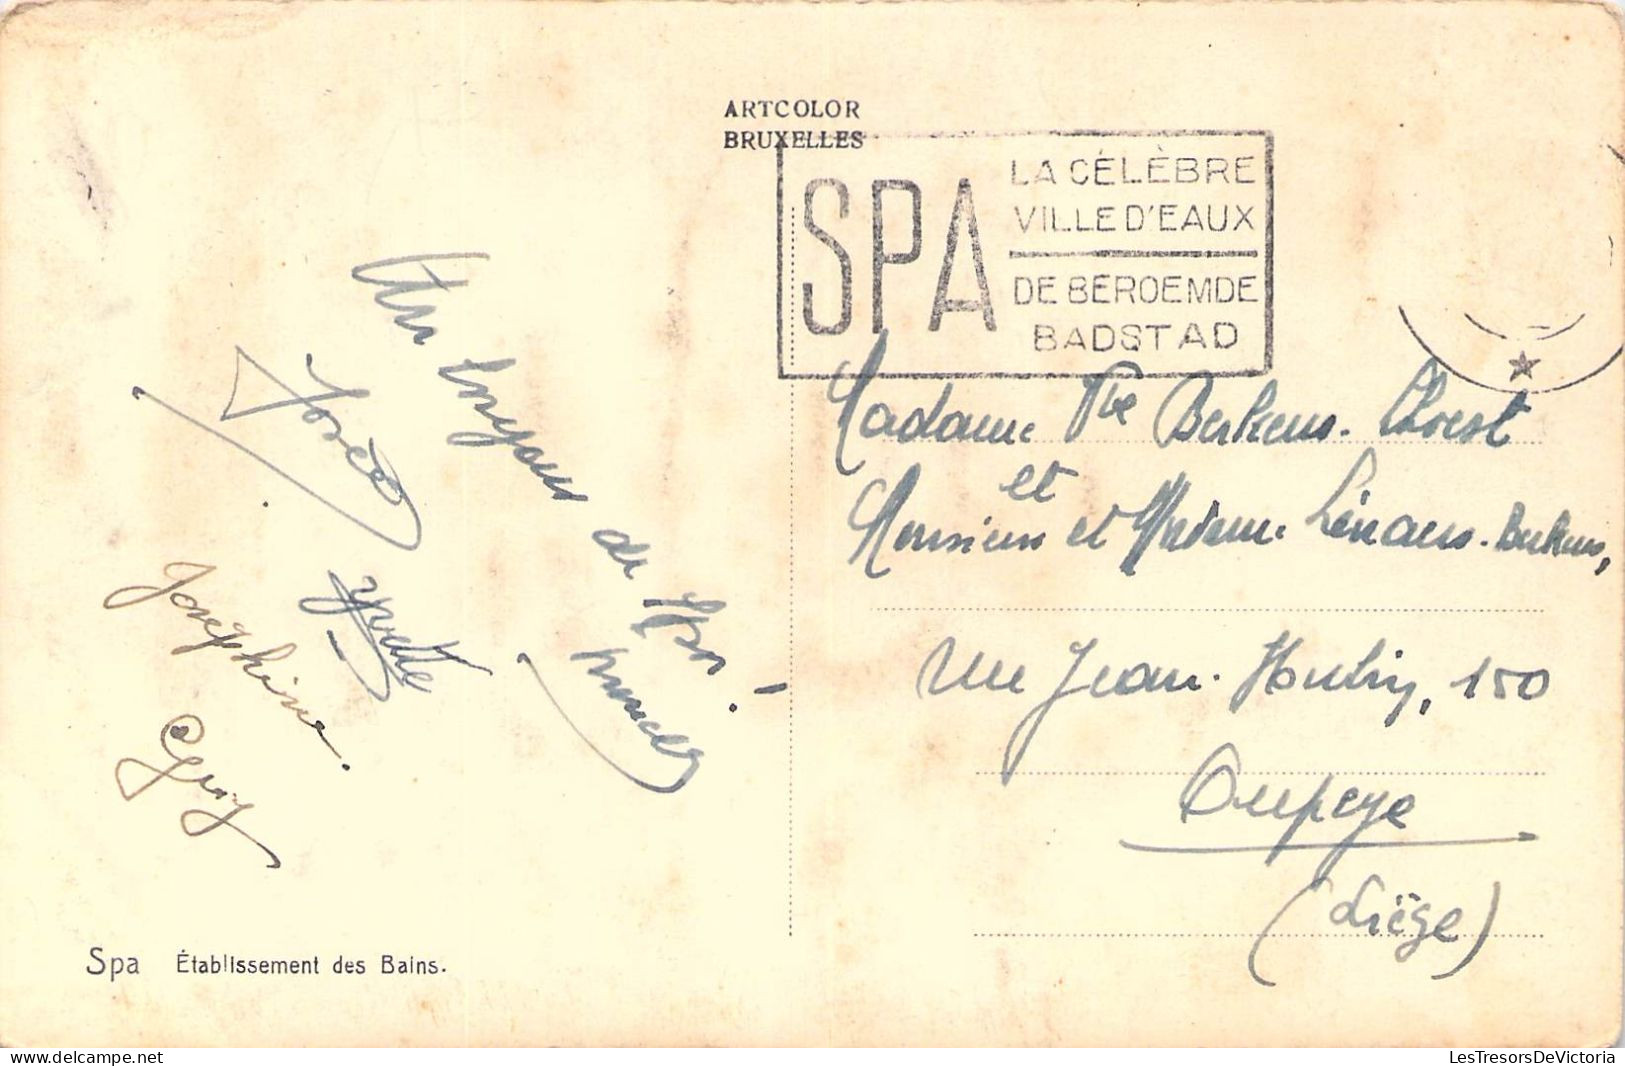 ARTCOLOR
BRUXELLES
SPA
LA CÉLÈBRE
VILLE D'EAUX
DE BEROEMDE
BADSTAD
Un
de
Josée
Yvette
Joséphine.
Guy
Madame Vve Berkens.
et
Monsieur et Lénaers. Berkens,
rue Jean. Hubin, 150
Oupeye
(Liège)
Spa Établissement des Bains.
delcampe.net
LesTresorsDeVictoria